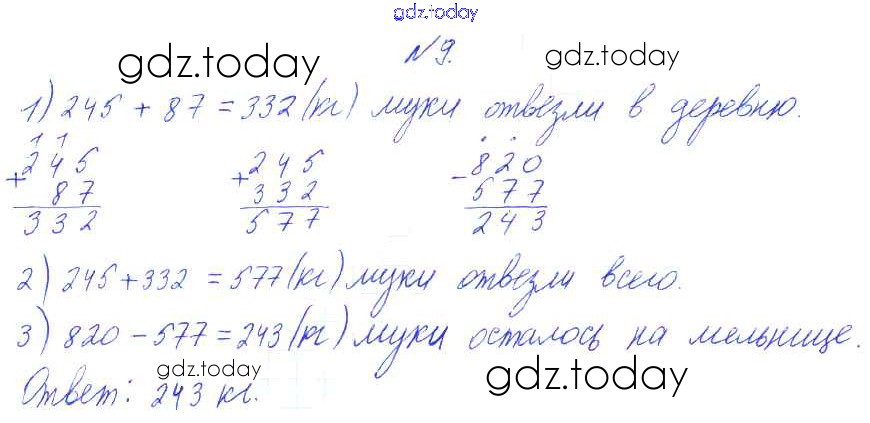 gdz.today
gdz.today №9. gdz.today
1) 245 + 87 = 332 (кг) муки отвезли в деревню.
1 1 . .
+ 245 + 245 - 820
87 332 577
332 577 243
2) 245 + 332 = 577 (кг) муки отвезли всего.
3) 820 - 577 = 243 (кг) муки осталось на мельнице.
Ответ: 243 кг.
gdz.today gdz.today